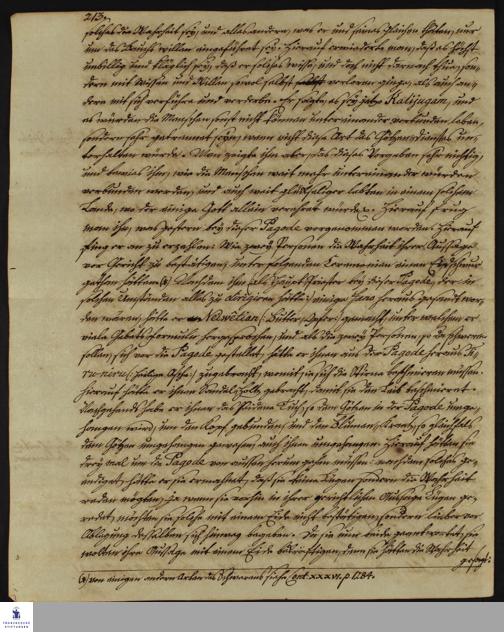 213.
solches die Wahrheit sey, und alles andere, was er und seines gleichen thäten, nur
um des Bauchs willen eingeführet sey. Hierauf erwiederte man, daß es höchst
unbillig und kläglich sey, daß er solches wisse, und doch nicht darnach thue, son-
dern mit Wissen und Willen sowol selbst verloren ginge, als auch an-
dere mit sich verführe und verderbe. Er sagte, es sey jetzo Kalijugam, und
es würden die Menschen sonst nicht können untereinander verbunden leben,
sondern sehr getrennet seyn, wann nicht diese Art des Götzen-Dienstes un-
terhalten würde. Man zeigte ihm aber, daß dieses Vorgeben sehr nichtig,
und bewies ihm, wie die Menschen weit mehr untereinander würden
verbunden werden, und auch weit glückseliger leben in einem solchen
Lande, wo der einige Gott allein verehret würde. Hierauf frug
man ihn, was gestern bey dieser Pagode vorgenommen worden. Hierauf
fing er an zu erzählen: Wie zwey Personen die Wahrheit ihrer Aussage
vor Gericht zu bestätigen, unter folgenden Ceremonien einen Eydschwur
gethan hätten (a) Nachdem ihm als Haupt-Priester bey dieser Pagode, der in
solchen Umständen alles zu dirigiren hätte, einige heraus gesandt wor-
den wären, hätte er Neiwélian (: Butter-Opfer:) gemacht, unter welchem er
viele Gebets-formuln hergesprochen, und als die zwey Personen, so da schweren
sollen, sich vor die Pagode gestellet, hätte er ihnen aus der Pagode heraus Ti-
runiru (: heilige Asche:) zugebracht, womit sie sich die Stirne beschmieren müssen.
Hierauf hätte er ihnen Sandel-Holtz gebracht, damit sie den Leib beschmieret.
Nachgehends habe er ihnen das seidene Tuch, so dem Götzen in der Pagode umge-
hangen wird, um den Kopf gebunden, und den Blumen-Krantz, so gleichfals
dem Götzen umgehangen gewesen, auch ihnen umgehangen. Hierauf hätten sie
drey mal um die Pagode von aussen herum gehen müssen. Nachdem solches ge-
endiget, hätte er sie ermahnet, daß sie keine Lügen sondern die Wahrheit
reden möchten. Ja wann sie vorhin in ihrer gerichtlichen Aussage Lügen ge-
redet, möchten sie solche mit einem Eide nicht bestätigen, sondern lieber vor
Ablegung desselben, sich hinweg begeben. Da sie nun beide geantwortet, sie
wolten ihre Aussage mit einem Eide bekräftigen, denn sie hätten die Wahrheit
gesagt:
(a) von einigen andern Arten des Schwerens siehe Cont. XXXVI. p. 1284.
FRANCKESCHE
STIFTUNGEN